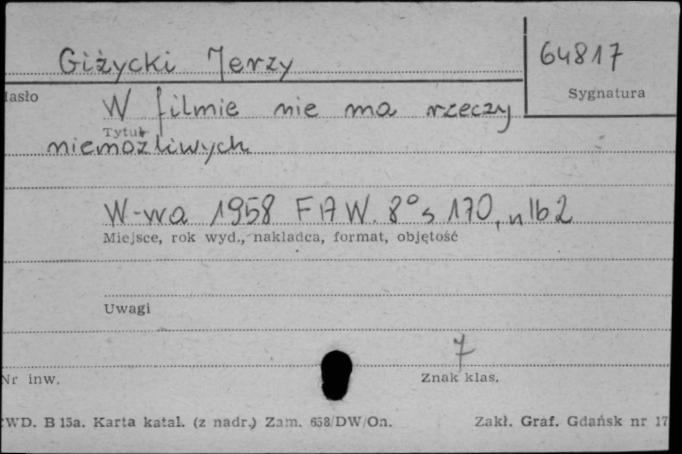 Giżycki Jerzy
64817
Hasło
Sygnatura
W filmie nie ma rzeczy
Tytuł
niemożliwych
W-wa 1958 FAW. 8° s 170, nlb 2
Miejsce, rok wyd., nakładca, format, objętość
Uwagi
7
Nr inw.
Znak klas.
WD. B 15a. Karta katal. (z nadr.) Zam. 658/DW/On.
Zakł. Graf. Gdańsk nr 17